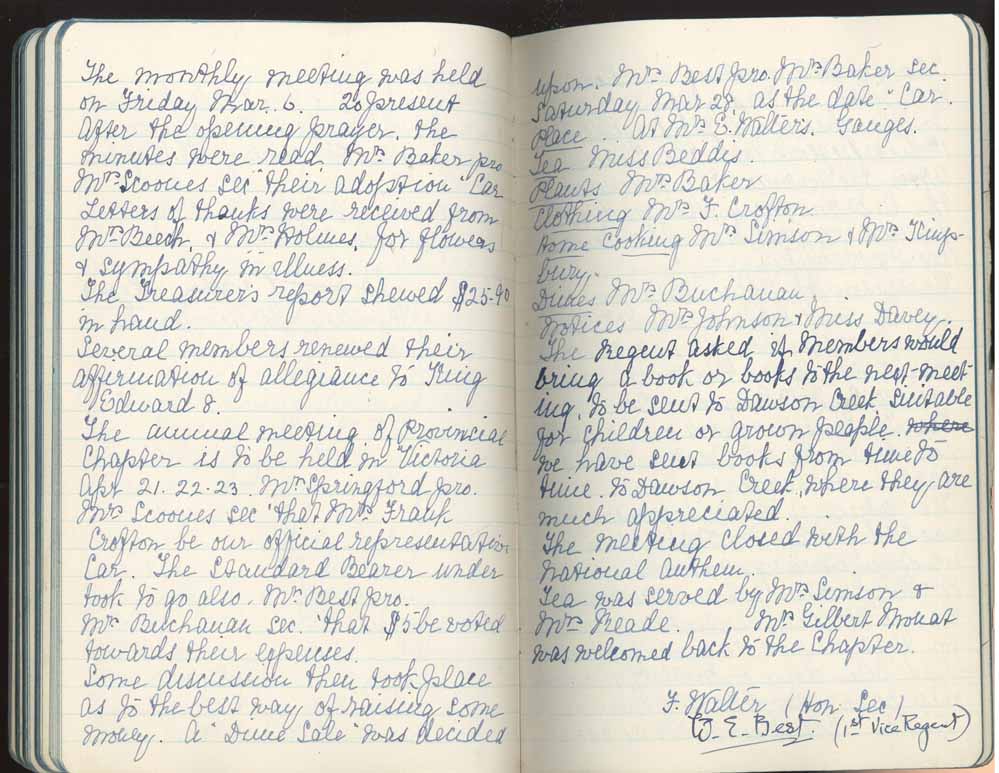 The monthly meeting was held
on Friday Mar. 6. 20 present
After the opening prayer. the
minutes were read Mrs Baker pro
Mrs Scoones sec "their adoption" Car
Letters of thanks were received from
Mrs Beech, & Mrs Holmes, for flowers
& sympathy in illness.
The Treasurer's report shewed $25-90
in hand.
Several members renewed their
affirmation of allegiance to King
Edward 8.
The annual meeting, of Provincial
Chapter is to be held in Victoria
Apr 21. 22. 23. Mrs Springford pro.
Mrs Scoones sec "that Mrs Frank
Crofton be our official representative
Car. The Standard Bearer under
took to go also. Mrs Best pro.
Mrs Buchanan sec. "that $5 be voted
towards their expenses.
Some discussion then took place
as to the best way of raising some
money. A "Dime Sale" was decided
upon. Mrs Best pro. Mrs Baker sec.
Saturday Mar 28 as the date" Car.
Place. At Mrs E. Walter's. Ganges.
Tea Miss Beddis.
Plants Mrs Baker
Clothing Mrs F. Crofton
Home Cooking Mrs Simson & Mrs Kings-
bury.
Dimes. Mrs Buchanan
Notices Mrs Johnson & Miss Davey.
The Regent asked if Members would
bring a book or books to the next meet-
ing, to be sent to Dawson Creek suitable
for children or grown people. where
We have sent books from time to
time. to Dawson Creek, where they are
much appreciated.
The meeting closed with the
national anthem.
Tea was served by Mrs Simson &
Mrs Reade. Mrs Gilbert Mouat
was welcomed back to the Chapter.
F. Walter (Hon Sec)
W. E. Best. (1st Vice Regent)